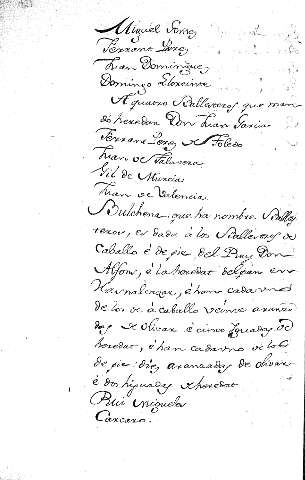 Miguel Gomez
Ferrant Perez
Juan Dominguez
Domingo Florcinta
A quatro Ballesteros que man
dó heredar Don Juan Garcia
Ferrant Perez de Toledo
Juan de Talavera
Gil de Murcia
Juan de Valencia.
Bulchena que ha nombre Balles
teros, es dada á los Ballesteros de
Caballo é de pie del Rey Don
Alfons, é la heredat del pan en
Haznalcazar, é han cada uno
de los de á caballo veinte aranza
das de olivar é cinco yugadas de
heredat, é han cada uno de los
de pie diez aranzadas de olivar
é dos yugadas de heredat
Rui Miguelez
Carcaro.